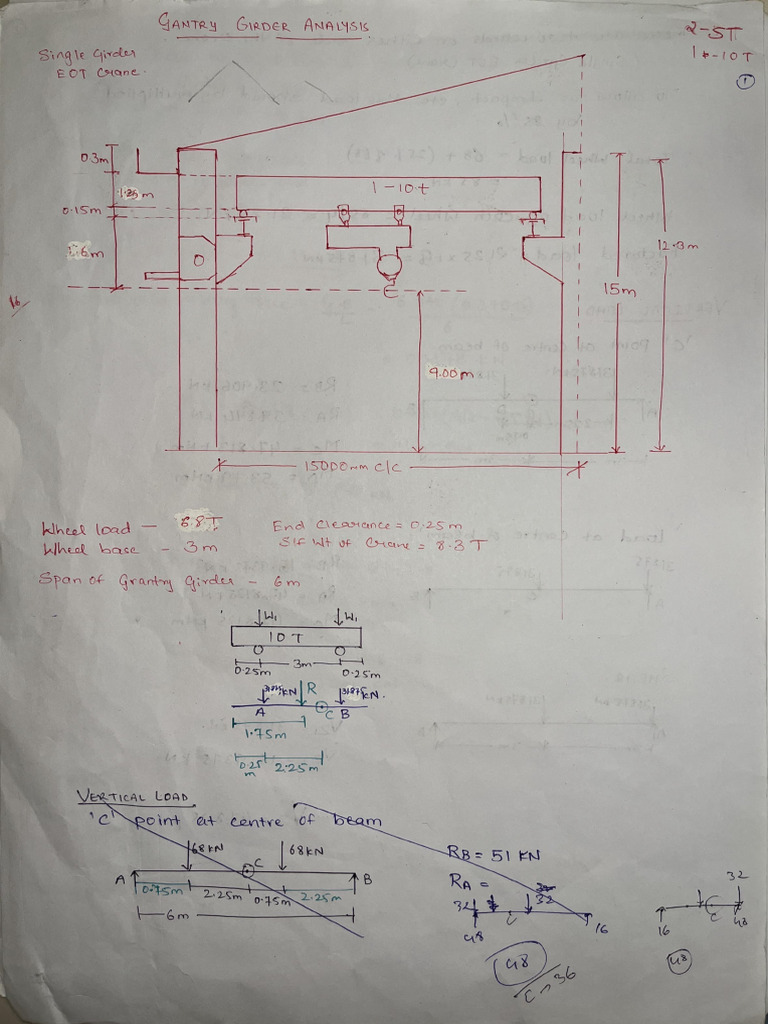 GANTRY GIRDER ANALYSIS
2-5T
1-10T
1
Single Girder
EOT Crane.
0.3m
1.25m
0.15m
1.6m
1-10t
12.3m
15m
9.00m
15000mm c/c
Wheel load - 6.8T
End Clearance = 0.25m
Wheel base - 3m
Slf Wt of Crane = 8.3T
Span of Grantry Girder - 6m
W₁ W₁
10T
0.25m 3m 0.25m
31.875KN R 31.875KN.
A C B
1.75m
0.25m 2.25m
VERTICAL LOAD
'C' point at centre of beam
68KN 68KN
A C B
0.75m 2.25m 0.75m 2.25m
6m
RB = 51 KN
RA =
32 32
C
48 16
48
C → 36
32
C
16 48
48